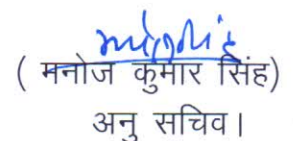 ( मनोज कुमार सिंह)
अनु सचिव।